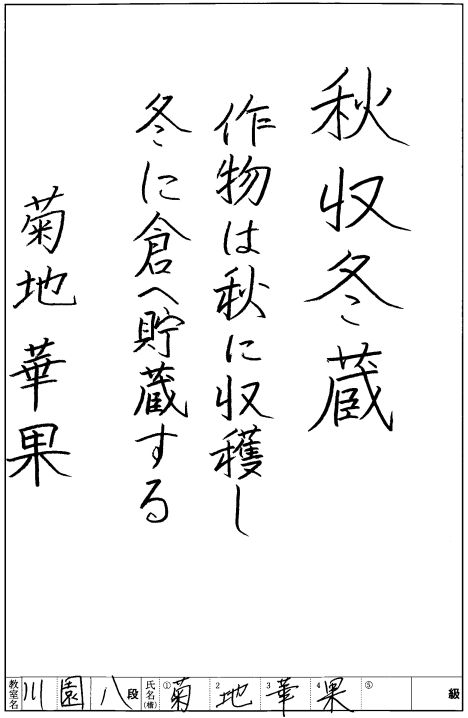 秋収冬蔵
作物は秋に収穫し
冬に倉へ貯蔵する
菊地華果
教室名 川園 八段 氏名(楷) ①菊 2地 3華 4果 ⑤ 級